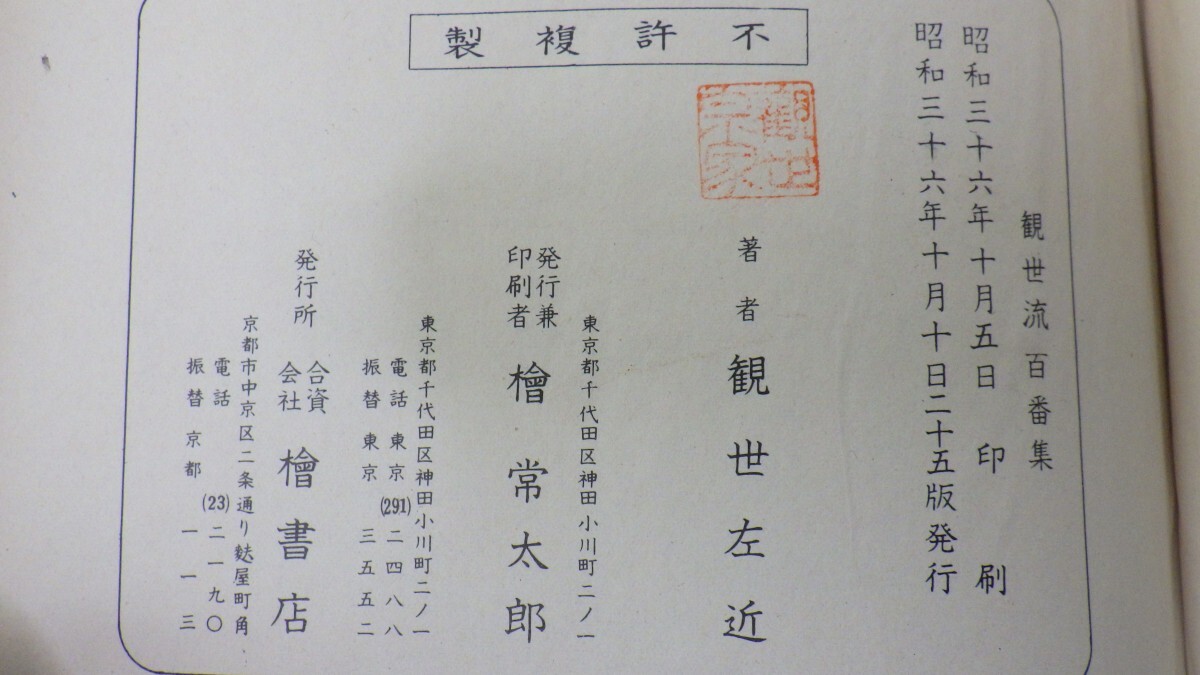 不許複製
観世流 百番集
昭和三十六年十月五日 印刷
昭和三十六年十月十日二十五版発行
観世宗家
著者 観世左近
東京都千代田区神田小川町二ノ一
発行兼
印刷者 檜常太郎
東京都千代田区神田小川町二ノ一
電話東京(291)二四八八
振替東京 三五五二
発行所 合資会社 檜書店
京都市中京区二条通り麩屋町角
電話 (23)二一九〇
振替京都 一一三